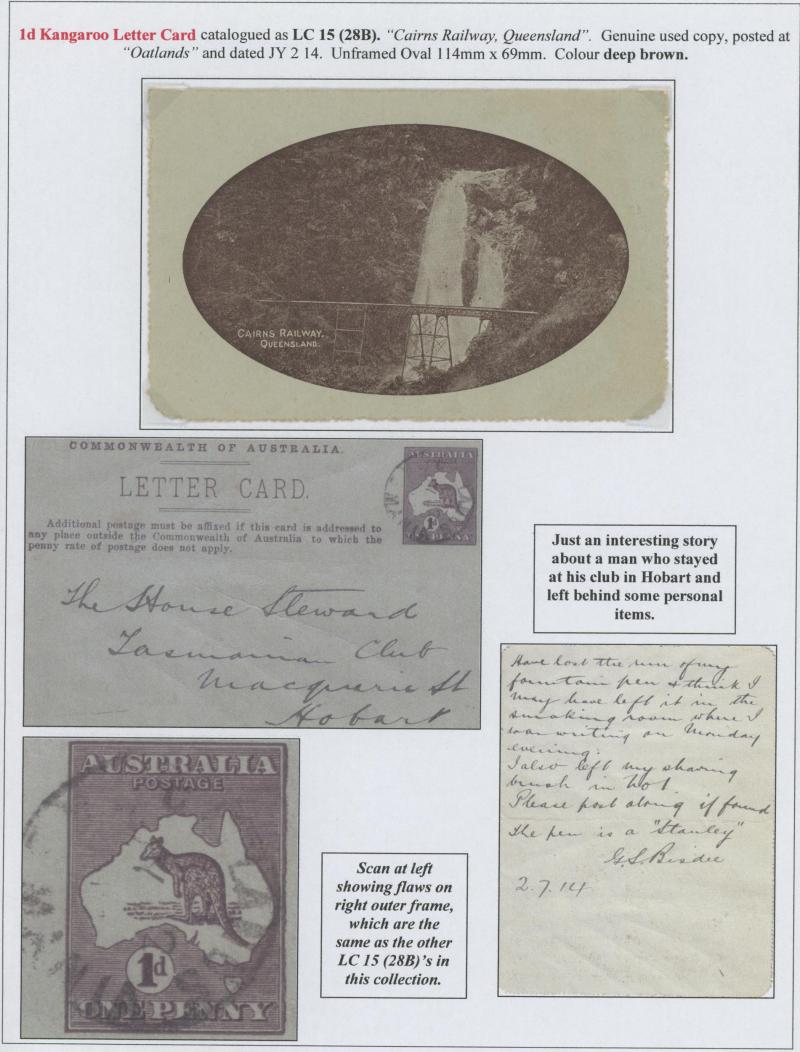 1d Kangaroo Letter Card catalogued as LC 15 (28B). "Cairns Railway, Queensland". Genuine used copy, posted at
"Oatlands" and dated JY 2 14. Unframed Oval 114mm x 69mm. Colour deep brown.
CAIRNS RAILWAY,
QUEENSLAND.
COMMONWEALTH OF AUSTRALIA.
LETTER CARD.
Additional postage must be affixed if this card is addressed to
any place outside the Commonwealth of Australia to which the
penny rate of postage does not apply.
AUSTRALIA
POSTAGE
1d
ONE PENNY
The House Steward
Tasmanian Club
Macquarie St
Hobart
Just an interesting story
about a man who stayed
at his club in Hobart and
left behind some personal
items.
Have lost the run of my
fountain pen & think I
may have left it in the
smoking room where I
was writing on Monday
evening.
I also left my shaving
brush in No 1
Please post along if found
The pen is a "Stanley"
G.S. Bisdee
2.7.14
AUSTRALIA
POSTAGE
1d
ONE PENNY
Scan at left
showing flaws on
right outer frame,
which are the
same as the other
LC 15 (28B)'s in
this collection.